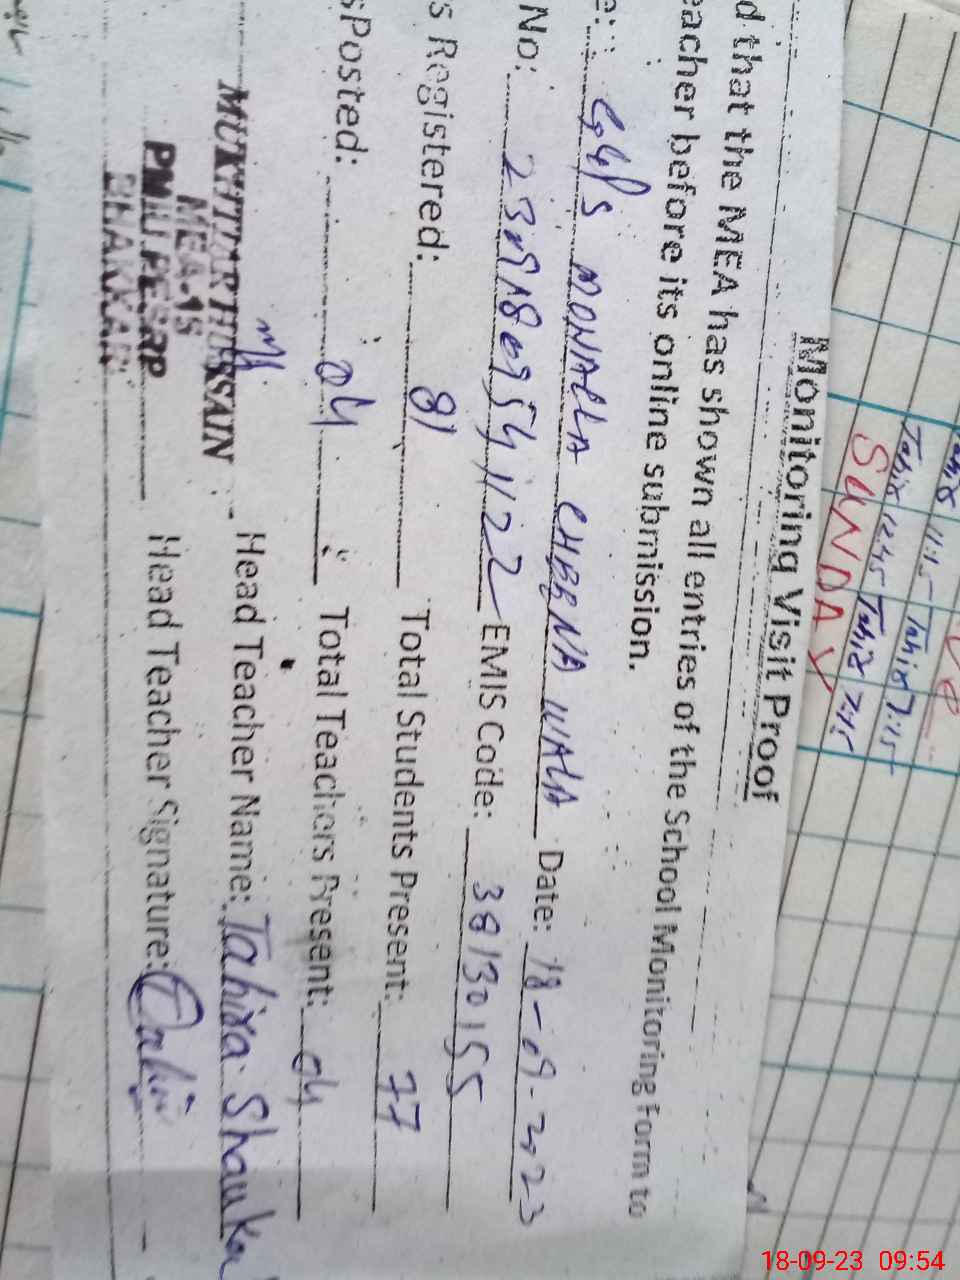 Monitoring Visit Proof
d that the MEA has shown all entries of the School Monitoring Form to
eacher before its online submission.
e: GGPS MONALLA CHEENA WALA Date: 18-09-2023
No: EMIS Code: 38130155
s Registered: 81 Total Students Present: 77
sPosted: 04 Total Teachers Present: 04
Head Teacher Name: Tahira Shauka
Head Teacher Signature:
MUKHTIAR HUSSAIN
MEA-15
PMIU PESRP
BHAKKAR
11:15 Tahir 7:15
Tahir 12:45 Tahir 7:45
SUNDAY
18-09-23 09:54